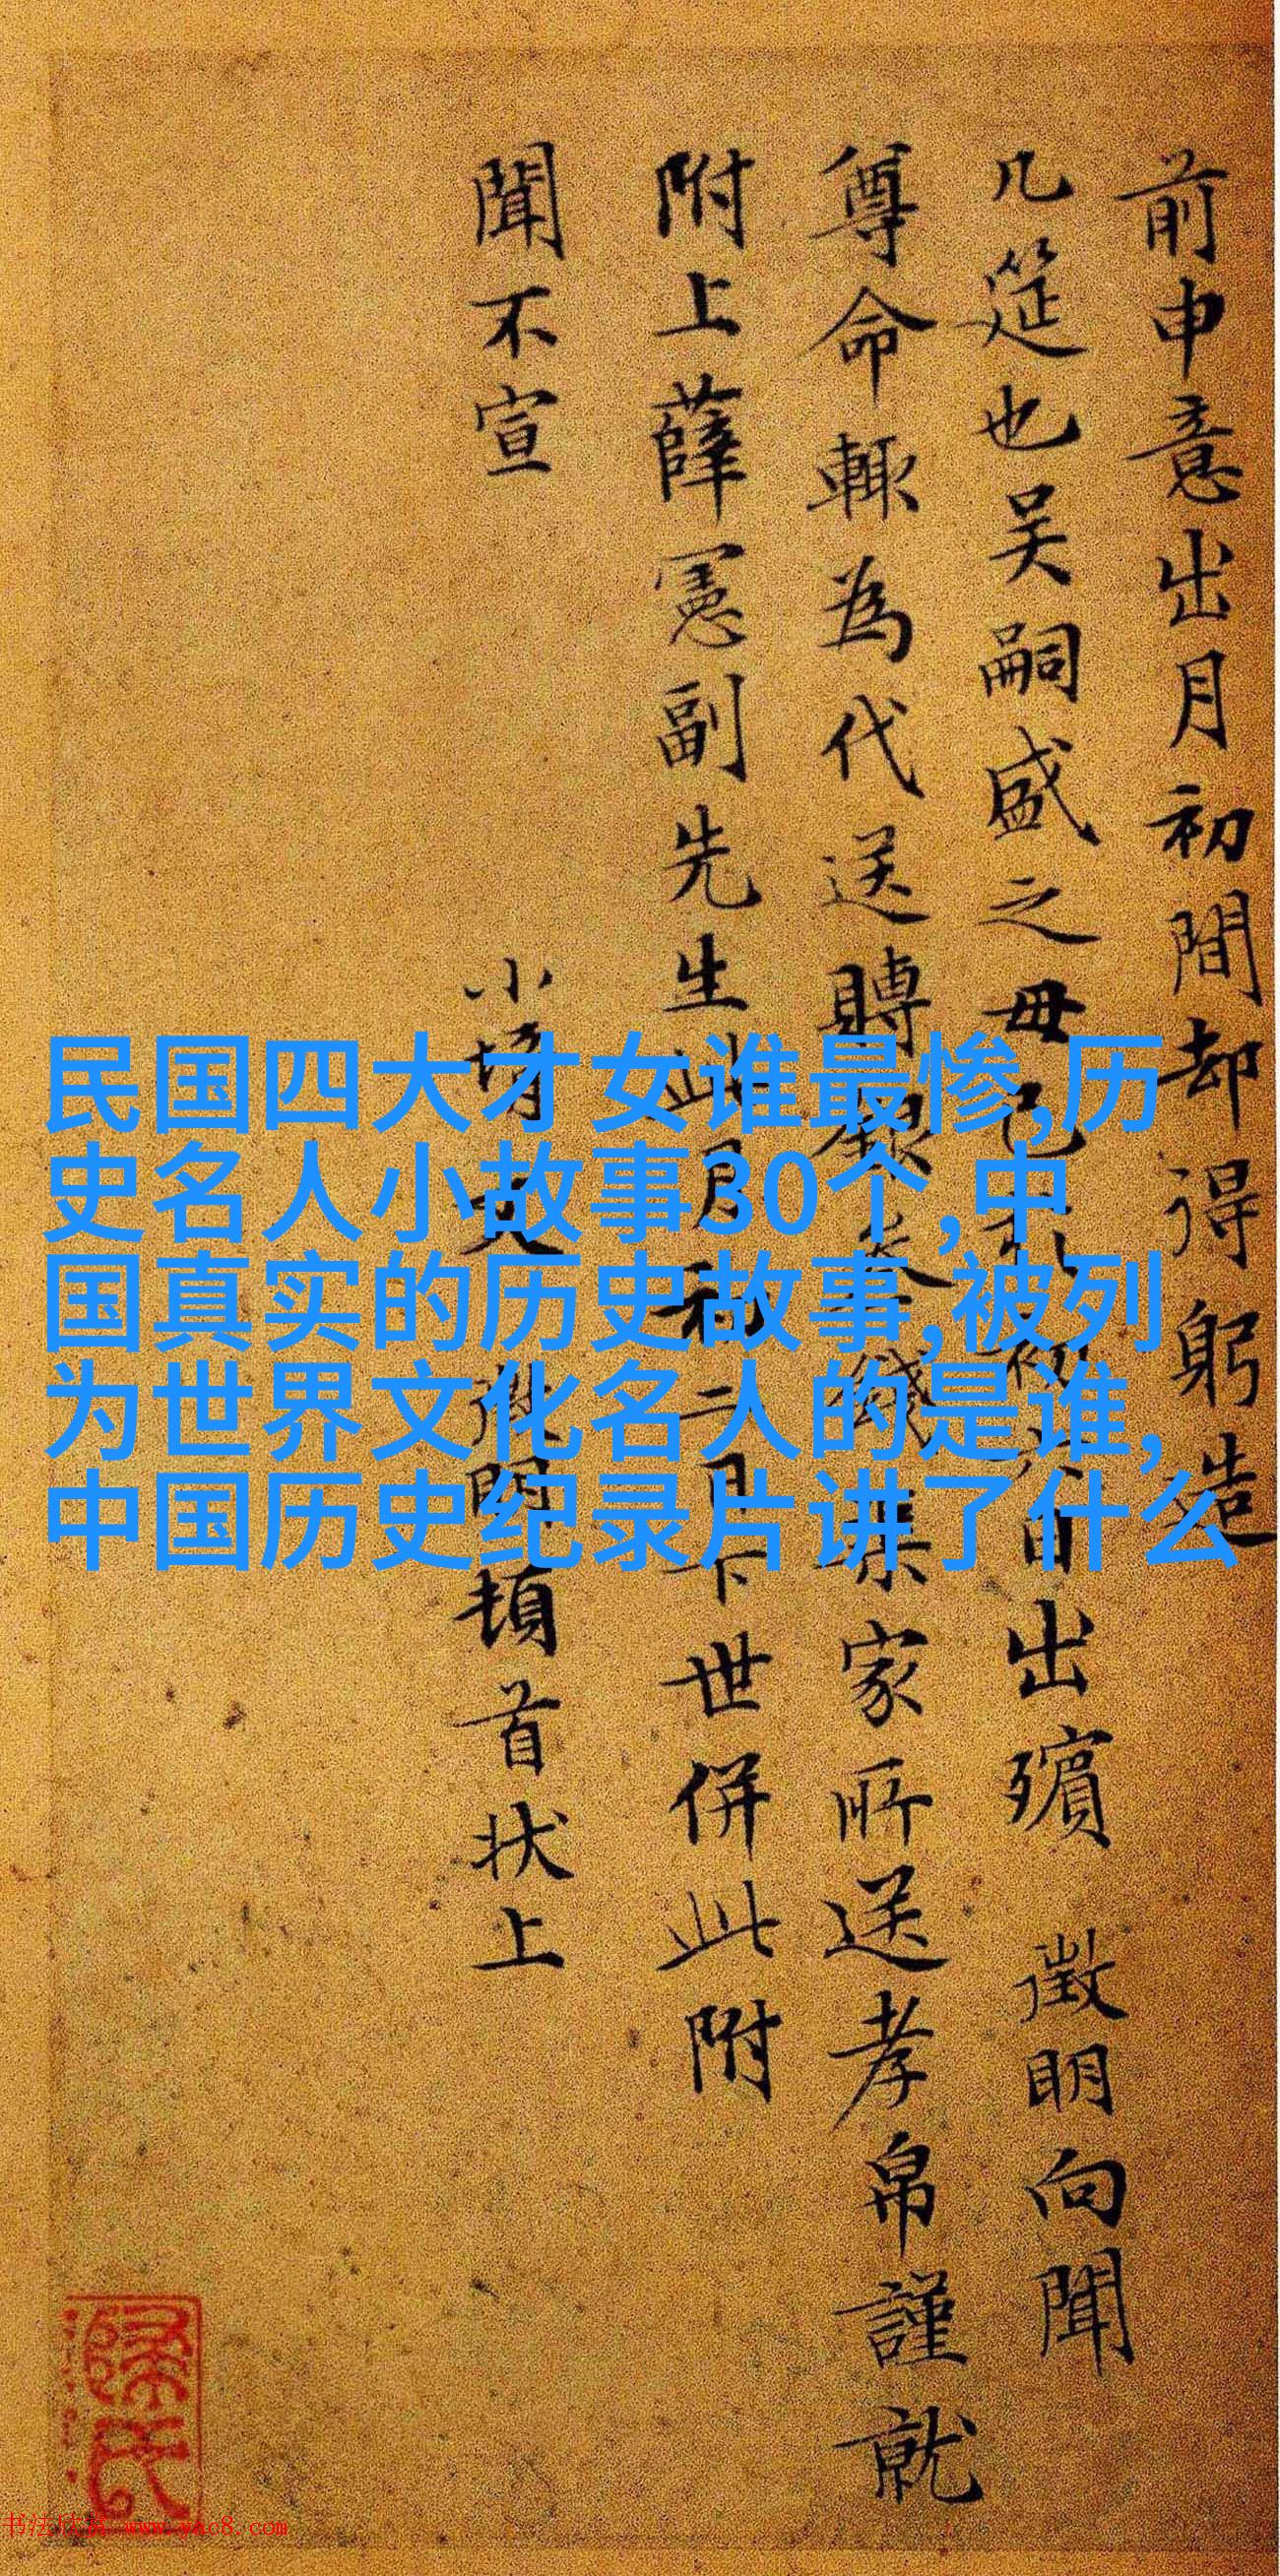 前申意出月初間却得躬造
几筵也吴嗣盛之毋已 初六日出殯 徵明向聞
尊命輙為代送賻銀叁錢 某家所送孝帛謹就
附上薛憲副先生此月初二日下世併此附
聞不宣
小壻文徵明頓首状上
民国四大才女谁最惨,历
史名人小故事30个,中
国真实的历史故事,被列
为世界文化名人的是谁,
中国历史纪录片讲了什么
书法欣赏 www.yac8.com